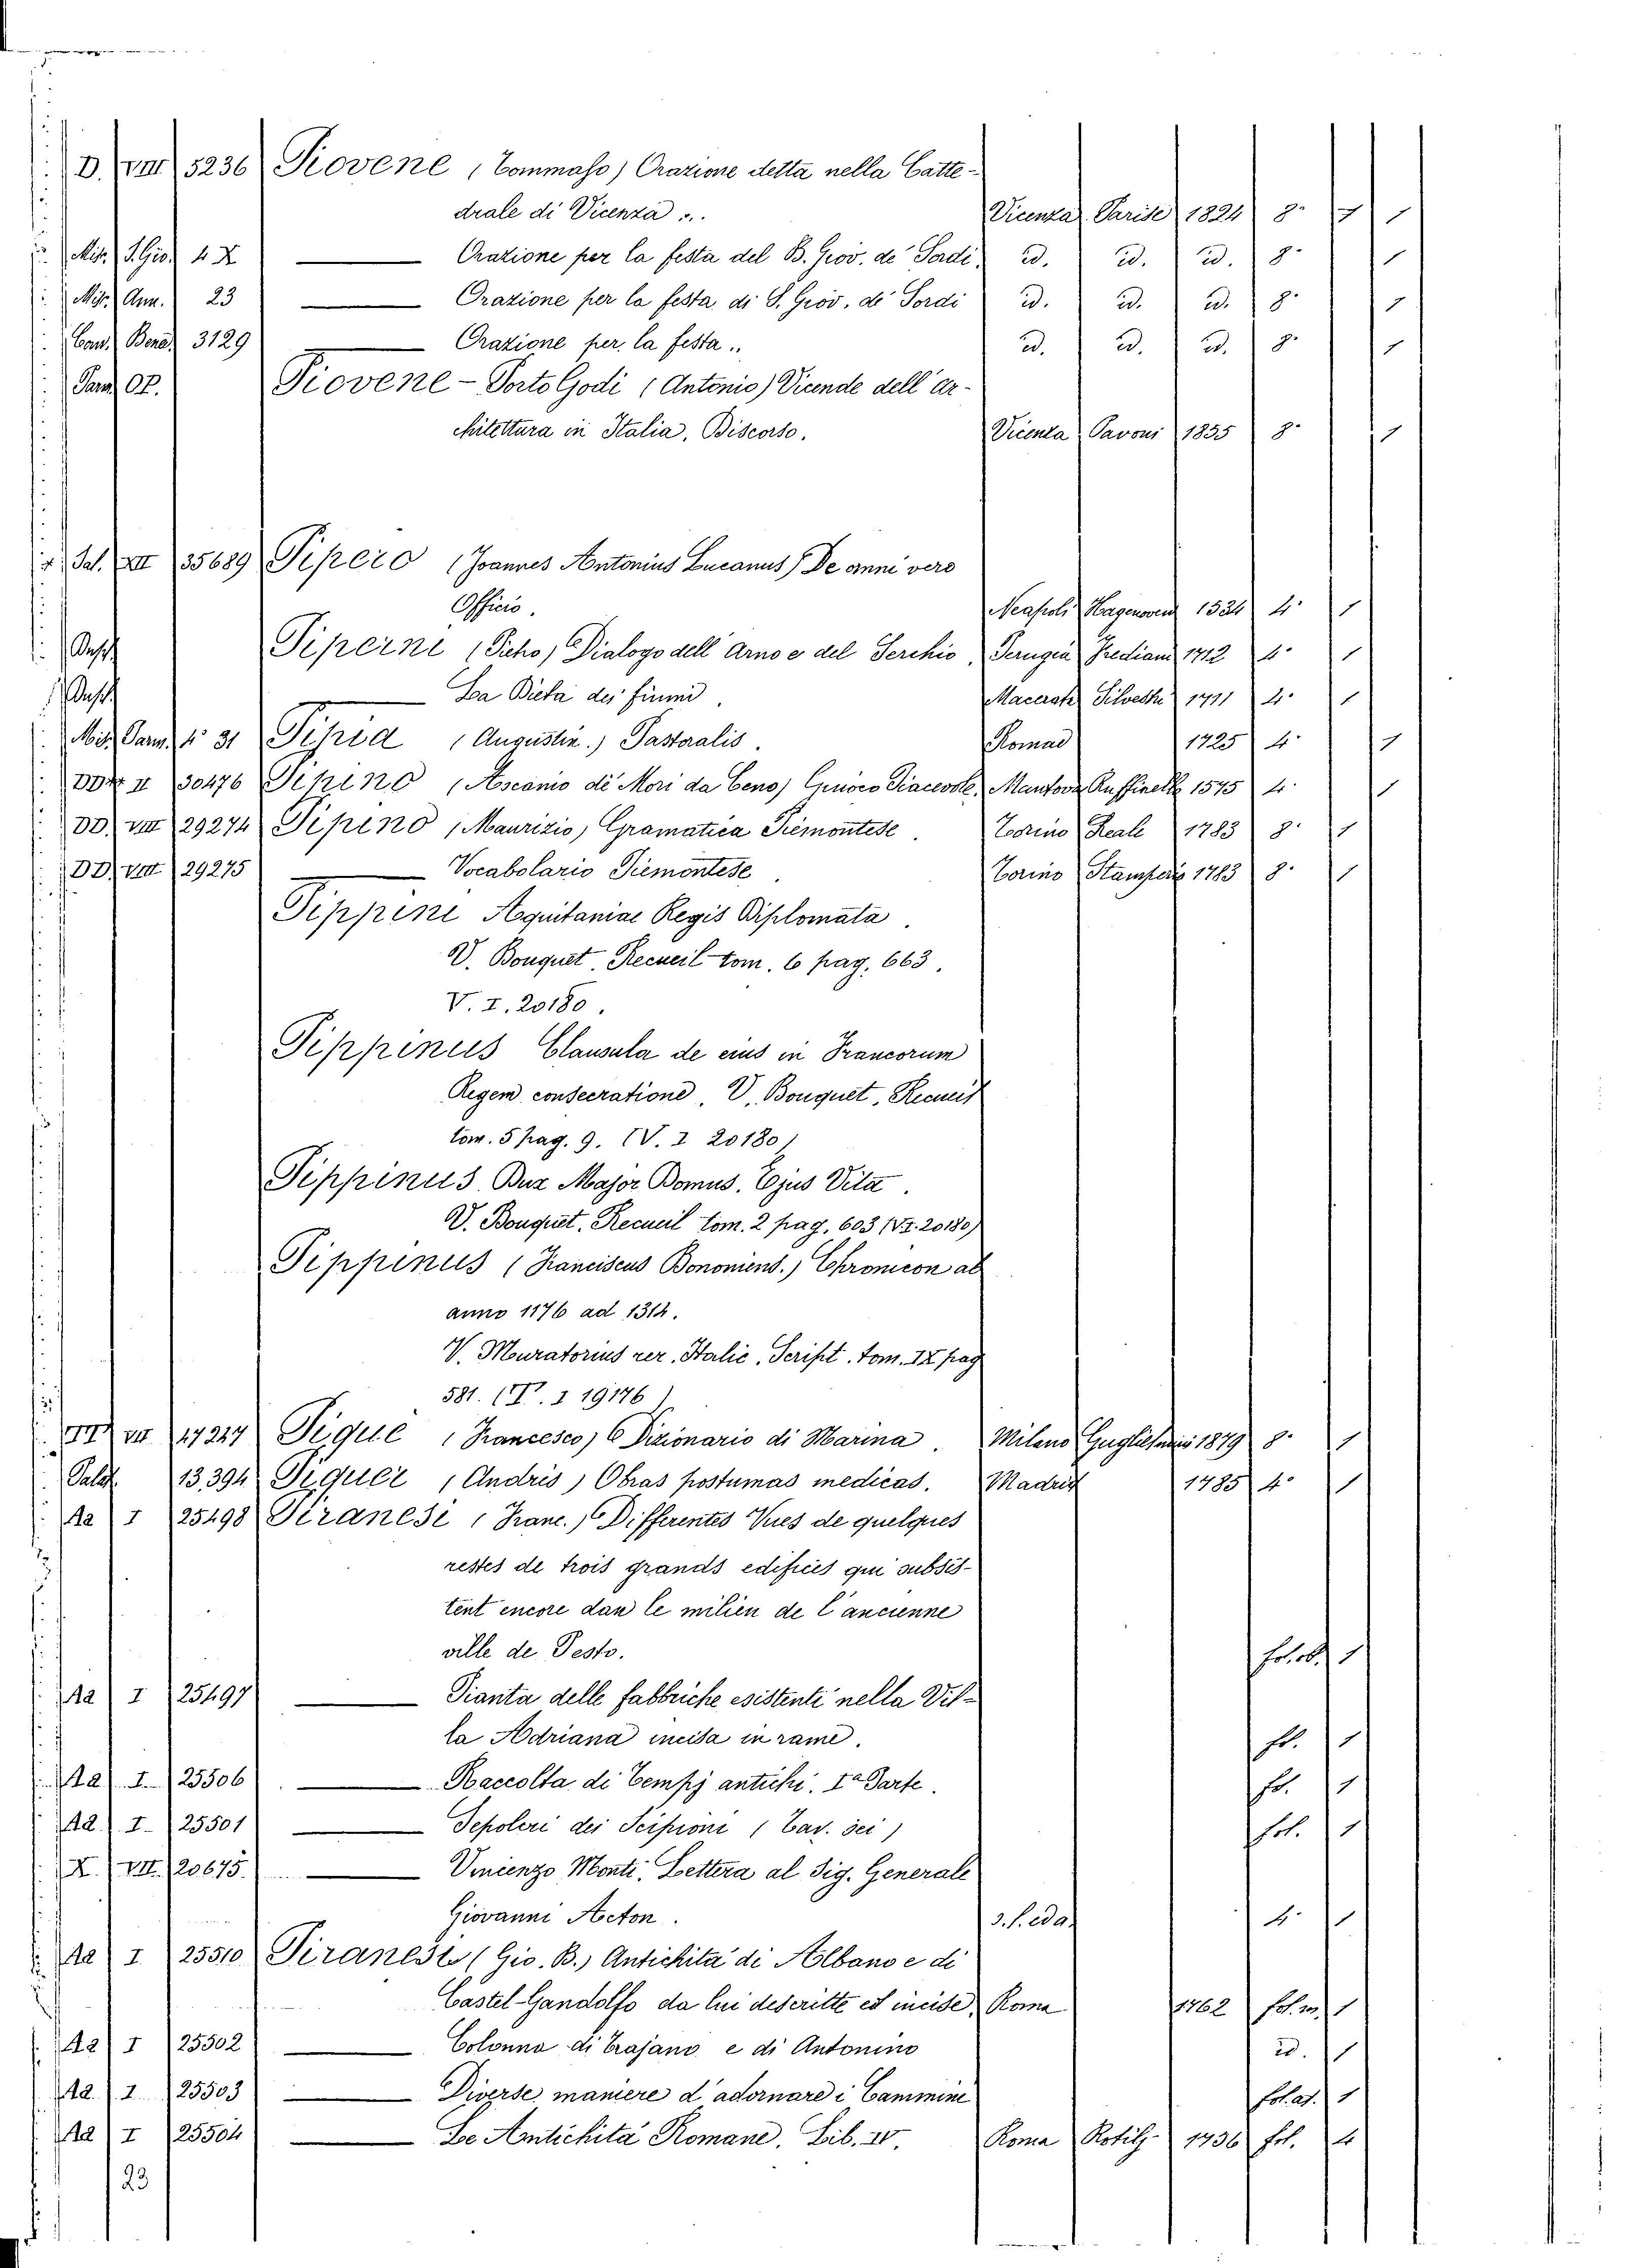 D. VIII 5236 Piovene (Tommaso) Orazione detta nella Catte-
drale di Vicenza ... Vicenza Parise 1824 8° 1
Mis. S. Gio. 4 X —— Orazione per la festa del B. Giov. de' Sordi id. id. id. 8° 1
Mis. Ann. 23 —— Orazione per la festa di S. Giov. de' Sordi id. id. id. 8° 1
Can. Bene. 3129 —— Orazione per la festa .. id. id. id. 8° 1
Parm. OP. Piovene - Porto Godi (Antonio) Vicende dell'ar-
chitettura in Italia, Discorso. Vicenza Pavoni 1855 8° 1
Sal. XII 35689 Pipero (Joannes Antonius Lucanus) De omni vero
Officio. Neapoli 1534 4° 1
Piperni Dialogo dell'Arno e del Serchio, Perugia 1712 4° 1
La Dieta dei fiumi. Macerata Silvestri 1711 4° 1
Mis. Parm. 4° 31 Pipia (Augustin.) Pastoralis. Romae 1725 4° 1
II 30476 Pipino (Ascanio de' Mori da Ceno) Giuoco Piacevole, Mantova Ruffinelli 1575 4° 1
DD. VIII 29274 Pipino (Maurizio) Gramatica Piemontese. Torino Reale 1783 8° 1
DD. VIII 29275 —— Vocabolario Piemontese. Torino Stamperia 1783 8° 1
Pippini Aquitaniae Regis Diplomata.
V. Bouquet. Recueil tom. 6 pag. 663.
V. I. 20180.
Pippinus Clausula de eius in Francorum
Regem consecratione. V. Bouquet, Recueil
tom. 5 pag. 9. (V. I 20180)
Pippinus Dux Major Domus. Ejus Vita.
V. Bouquet, Recueil tom. 2 pag. 603 (V.I. 20180)
Pippinus (Franciscus Bononiens.) Chronicon ab
anno 1176 ad 1314.
V. Muratorius rer. Italic. Script. tom. IX pag
581. (T. I 19176)
VII 17217 Piqué (Francesco) Dizionario di Marina. Milano Guglielmini 1879 8° 1
Palat. 13394 Piquer (Andrés) Obras postumas medicas. Madrid 1785 4° 1
Aa I 25498 Piranesi (Franc.) Differentes Vues de quelques
restes de trois grands edifices qui subsis-
tent encore dan le milieu de l'ancienne
ville de Pesto. fol. obl. 1
Aa I 25497 —— Pianta delle fabbriche esistenti nella Vil-
la Adriana incisa in rame. fol. 1
Aa I. 25506 —— Raccolta di Tempj antichi. Iª Parte. fol. 1
Aa. I. 25501 —— Sepolcri dei Scipioni (Tav. sei) fol. 1
X. VII. 20675. —— Vincenzo Monti. Lettera al Sig. Generale
Giovanni Acton. s. l. ed a. 4° 1
Aa I 25510 Piranesi (Gio. B.) Antichità di Albano e di
Castel-Gandolfo da lui descritte ed incise, Roma 1762 fol. m. 1
Aa I 25502 —— Colonna di Trajano e di Antonino id. 1
Aa. I 25503 —— Diverse maniere d'adornare i Cammini fol. at. 1
Aa I 25504 —— Le Antichità Romane. Lib. IV. Roma Rotilj 1736 fol. 4
23